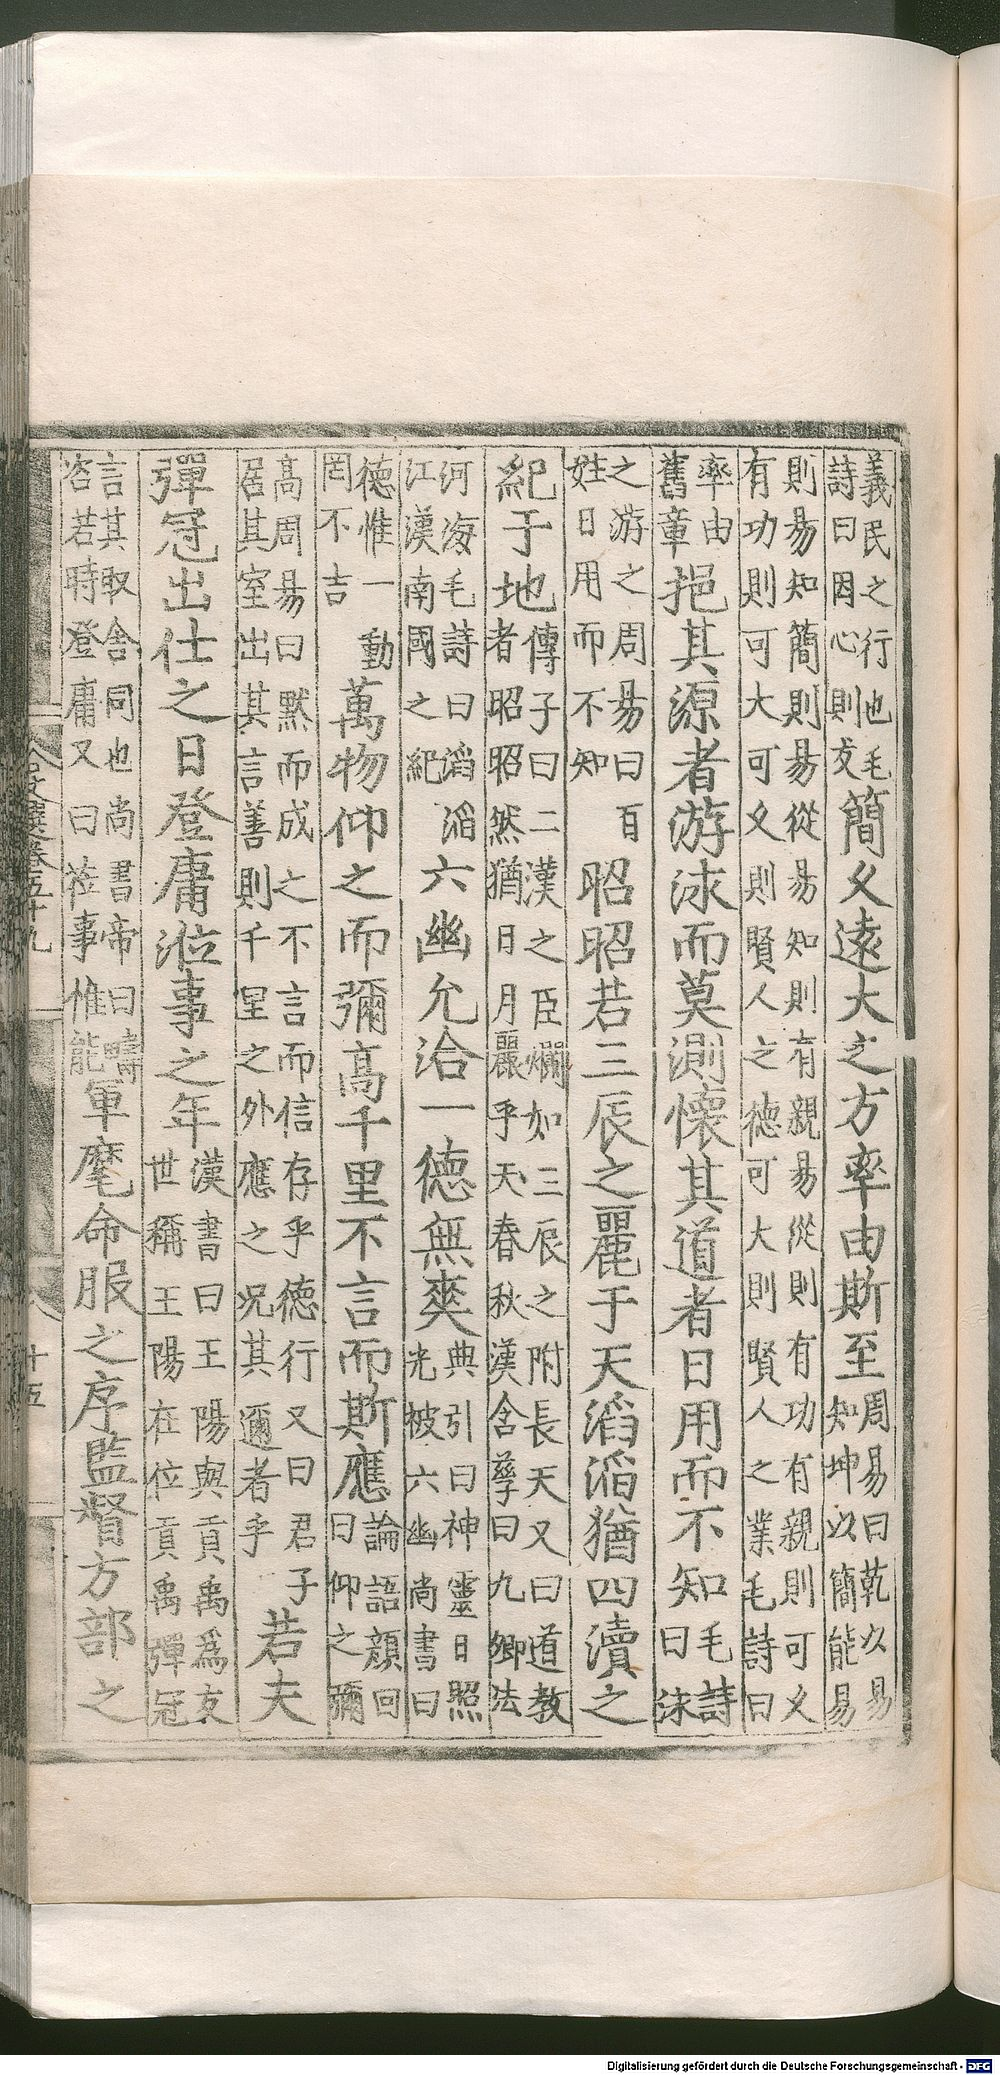 義民之行也毛詩曰因心則友簡久遠大之方率由斯至周易曰乾以易知坤以簡能易
則易知簡則易從易知則有親易從則有功有親則可久有功則可大可久則賢人之德可大則賢人之業毛詩曰
率由舊章挹其源者游泳而莫測懷其道者日用而不知毛詩曰泳
之游之周易曰百姓日用而不知昭昭若三辰之麗于天滔滔猶四瀆之
紀于地傅子曰二漢之臣爛如三辰之附長天又曰道教者昭昭然猶日月麗乎天春秋漢含孳曰九卿法
河海毛詩曰滔滔江漢南國之紀六幽允洽一德無爽典引曰神靈日照光被六幽尚書曰
德惟一動罔不吉萬物仰之而彌高千里不言而斯應論語顏回曰仰之彌
高周易曰默而成之不言而信存乎德行又曰君子居其室出其言善則千里之外應之況其邇者乎若夫
彈冠出仕之日登庸涖事之年漢書曰王陽與貢禹爲友世稱王陽在位貢禹彈冠
言其取舍同也尚書帝曰疇咨若時登庸又曰莅事惟能軍麾命服之序監督方部之
文選卷五十九
十五
Digitalisierung gefördert durch die Deutsche Forschungsgemeinschaft - DFG